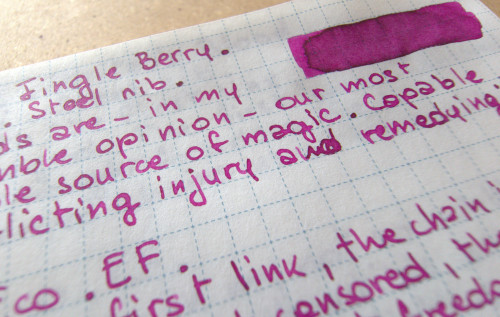 Jingle Berry.
. Steel nib.
ds are - in my
mble opinion - our most
le source of magic. Capable
licting injury and remedying
Eco. EF.
first link, the chain
censored, the
freedom